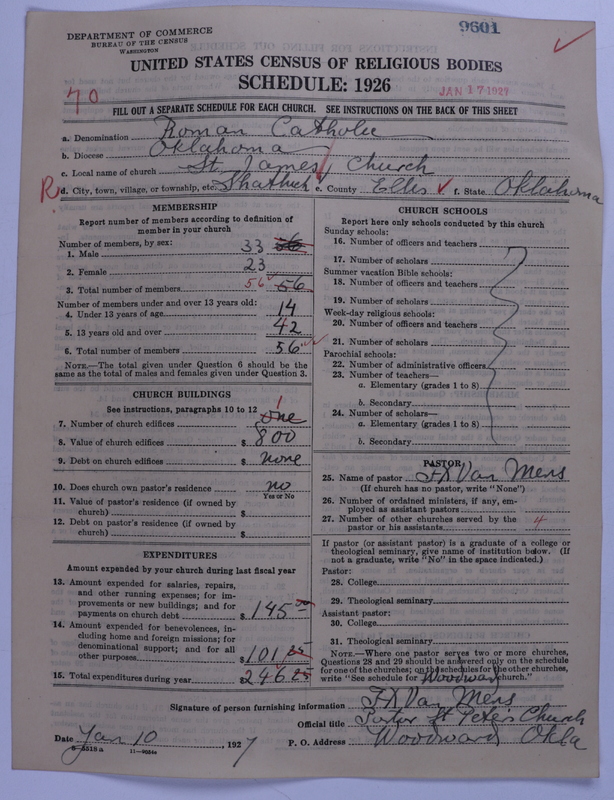 DEPARTMENT OF COMMERCE
BUREAU OF THE CENSUS
WASHINGTON
9601
UNITED STATES CENSUS OF RELIGIOUS BODIES
SCHEDULE: 1926
JAN 17 1927
70
FILL OUT A SEPARATE SCHEDULE FOR EACH CHURCH. SEE INSTRUCTIONS ON THE BACK OF THIS SHEET
a. Denomination Roman Catholic
b. Diocese Oklahoma
c. Local name of church St. James Church
R d. City, town, village, or township, etc. Shattuck e. County Ellis f. State Oklahoma
MEMBERSHIP
Report number of members according to definition of
member in your church
Number of members, by sex:
1. Male 33 56
2. Female 23
3. Total number of members 56 56
Number of members under and over 13 years old:
4. Under 13 years of age 14
5. 13 years old and over 42
6. Total number of members 56
NOTE.—The total given under Question 6 should be the
same as the total of males and females given under Question 3.
CHURCH BUILDINGS
See instructions, paragraphs 10 to 12
7. Number of church edifices one 1
8. Value of church edifices $ 800
9. Debt on church edifices $ none
10. Does church own pastor's residence no
Yes or No
11. Value of pastor's residence (if owned by
church) $
12. Debt on pastor's residence (if owned by
church) $
EXPENDITURES
Amount expended by your church during last fiscal year
13. Amount expended for salaries, repairs,
and other running expenses; for im-
provements or new buildings; and for
payments on church debt $ 145.00
14. Amount expended for benevolences, in-
cluding home and foreign missions; for
denominational support; and for all
other purposes $ 101.25
15. Total expenditures during year $ 246.25
CHURCH SCHOOLS
Report here only schools conducted by this church
Sunday schools:
16. Number of officers and teachers
17. Number of scholars
Summer vacation Bible schools:
18. Number of officers and teachers
19. Number of scholars
Week-day religious schools:
20. Number of officers and teachers
21. Number of scholars
Parochial schools:
22. Number of administrative officers
23. Number of teachers—
a. Elementary (grades 1 to 8)
b. Secondary
24. Number of scholars—
a. Elementary (grades 1 to 8)
b. Secondary
PASTOR
25. Name of pastor FX Van Mens
(If church has no pastor, write "None")
26. Number of ordained ministers, if any, em-
ployed as assistant pastors
27. Number of other churches served by the
pastor or his assistants 4
If pastor (or assistant pastor) is a graduate of a college or
theological seminary, give name of institution below. (If
not a graduate, write "No" in the space indicated.)
Pastor:
28. College
29. Theological seminary
Assistant pastor:
30. College
31. Theological seminary
NOTE.—Where one pastor serves two or more churches,
Questions 28 and 29 should be answered only on the schedule
for one of the churches; on the schedules for the other churches,
write "See schedule for Woodward church."
Signature of person furnishing information FX Van Mens
Official title Pastor St Peter's Church
Date Jan 10, 1927 P. O. Address Woodward Okla
8-5518a 11-9824a